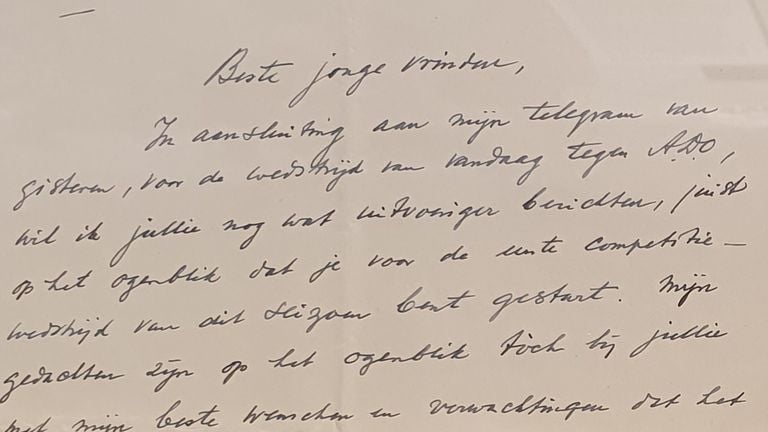 Beste jonge vrinden,
In aansluiting aan mijn telegram van
gisteren, voor de wedstrijd van vandaag tegen A.D.O,
wil ik jullie nog wat uitvoeriger berichten, juist
op het ogenblik dat je voor de eerste competitie–
wedstrijd van dit seizoen bent gestart. Mijn
gedachten zijn op het ogenblik tòch bij jullie
met mijn beste wenschen en verwachtingen dat het